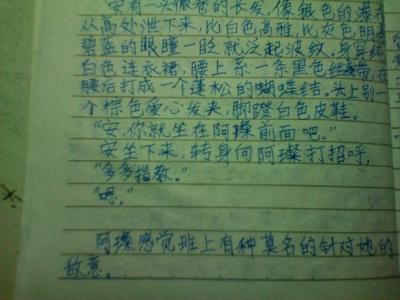 安有一头微奇的长发,像银色的瀑布
从高处泄下来,比白色高雅,比灰色明
碧蓝的眼瞳一眨就泛起波纹。身穿纯
白色连衣裙,腰上系一条黑色丝带,在
腰后打成一个蓬松的蝴蝶结。头上别一
个棕色爱心发夹,脚蹬白色皮鞋。
“安,你就坐在阿璨前面吧。”
安坐下来,转身向阿璨打招呼,
“多多指教。”
“嗯。”
阿璨感觉班上有种莫名的针对她的
敌意。